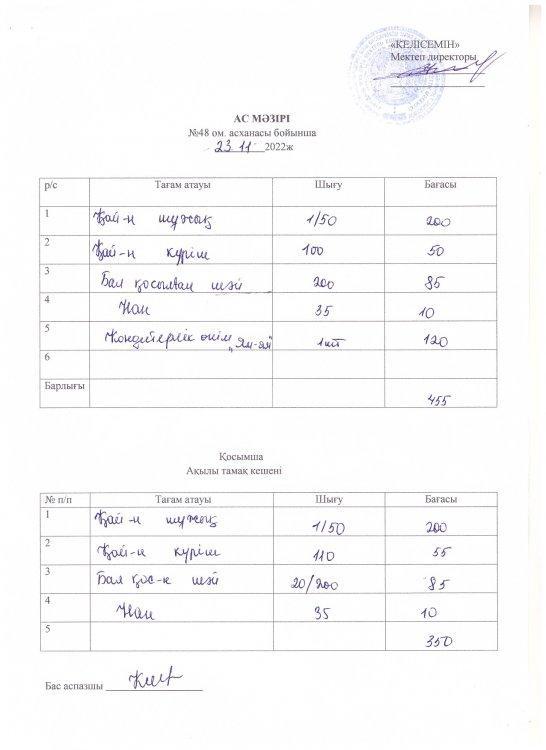 «КЕЛІСЕМІН»
Мектеп директоры
АС МӘЗІРІ
№48 ом. асханасы бойынша
23.11 2022ж
р/с Тағам атауы Шығу Бағасы
1 Қай-н шұжық 1/50 200
2 Қай-н күріш 100 50
3 Бал қосылған шәй 200 85
4 Нан 35 10
5 Кондитерлік өнім „Ям-ям" 1шт 120
6
Барлығы 455
Қосымша
Ақылы тамақ кешені
№ п/п Тағам атауы Шығу Бағасы
1 Қай-н шұжық 1/50 200
2 Қай-н күріш 110 55
3 Бал қос-н шәй 20/200 85
4 Нан 35 10
5 350
Бас аспазшы